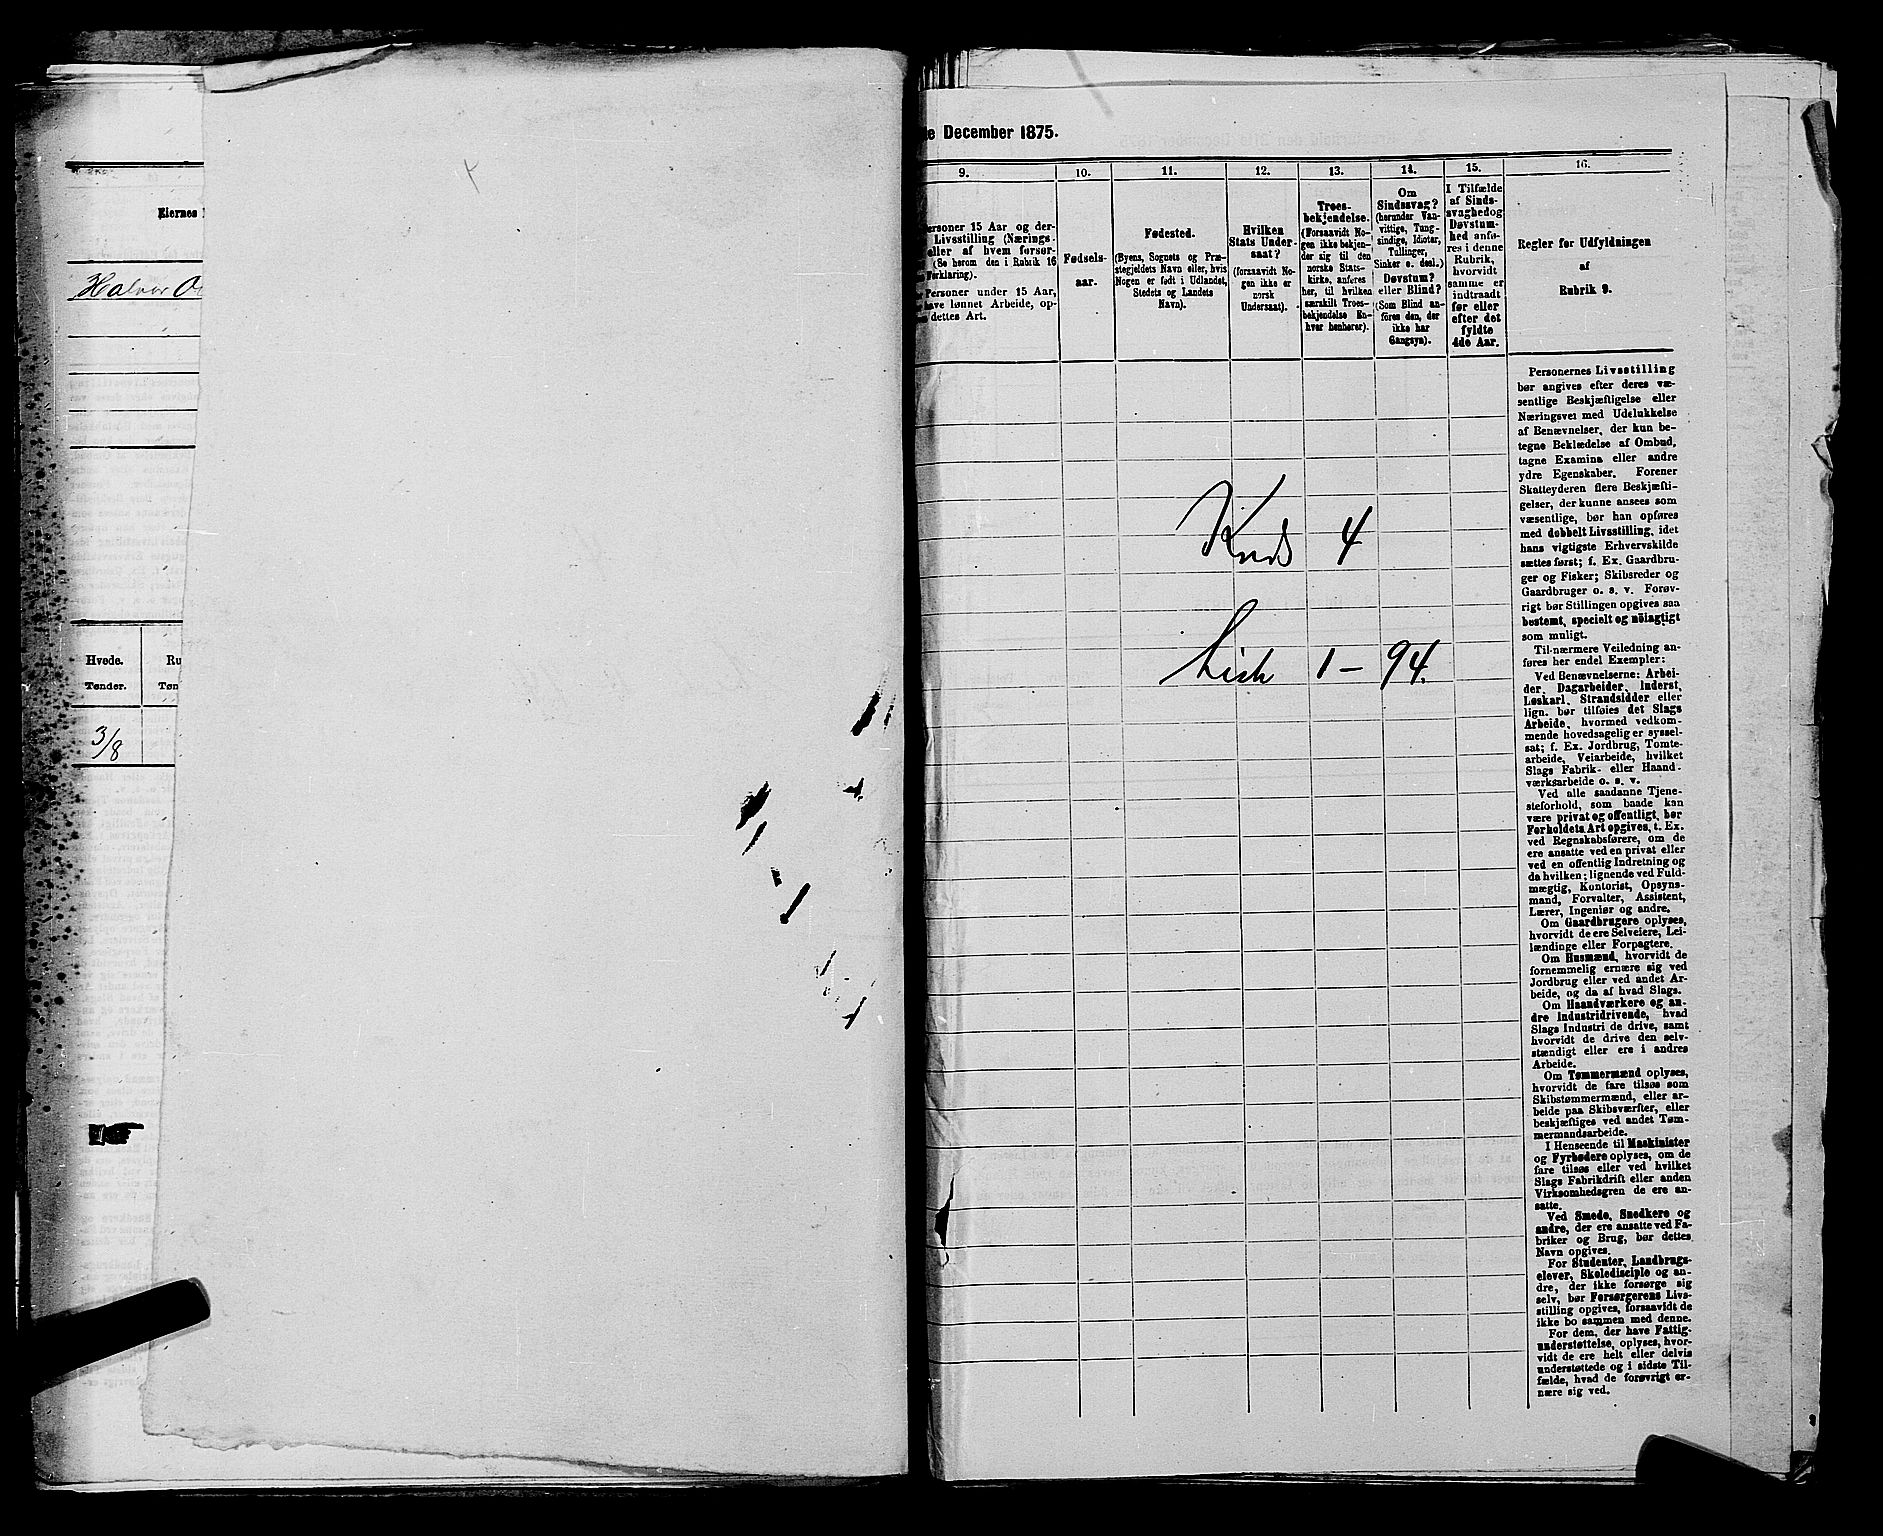 Eiernes
Halvor
Hvede.
Tønder.
3/8
December 1875.
9.
10.
11.
12.
13.
14.
15.
16.
Personer 15 Aar og der-
Livsstilling (Nærings-
eller af hvem forsør-
(Se herom den i Rubrik 16
Forklaring).
Personer under 15 Aar,
have lønnet Arbeide, op-
dettes Art.
Fødsels-
aar.
Fødested.
(Byens, Sognets og Præ-
stegjeldets Navn eller, hvis
Nogen er født i Udlandet,
Stedets og Landets
Navn).
Hvilken
Stats Under-
saat?
(forsaavidt No-
gen ikke er
norsk
Undersaat).
Troes-
bekjendelse.
(Forsaavidt No-
gen ikke bekjen-
der sig til den
norske Stats-
kirke, anføres
her, til hvilken
særskilt Troes-
bekjendelse En-
hver henhører).
Om
Sindssvag?
(herunder Van-
vittige, Tung-
sindige, Idioter,
Tullinger,
Sinker o. desl.)
Døvstum?
eller Blind?
(Som Blind an-
føres den, der
ikke har
Gangsyn).
I Tilfælde
af Sinds-
svaghed og
Døvstum-
hed anfø-
res i denne
Rubrik,
hvorvidt
samme er
indtraadt
før eller
efter det
fyldte
4de Aar.
Regler for Udfyldningen
af
Rubrik 9.
Personernes Livsstilling
bør angives efter deres væ-
sentlige Beskjæftigelse eller
Næringsvei med Udelukkelse
af Benævnelser, der kun be-
tegne Beklædelse af Ombud,
tagne Examina eller andre
ydre Egenskaber. Forener
Skatteyderen flere Beskjæfti-
gelser, der kunne ansees som
væsentlige, bør han opføres
med dobbelt Livsstilling, idet
hans vigtigste Erhvervskilde
sættes først; f. Ex. Gaardbru-
ger og Fisker; Skibsreder og
Gaardbruger o. s. v. Forøv-
rigt bør Stillingen opgives saa
bestemt, specielt og nöiagtigt
som muligt.
Til nærmere Veiledning an-
føres her endel Exempler:
Ved Benævnelserne: Arbei-
der, Dagarbeider, Inderst,
Løskarl, Strandsidder eller
lign. bør tilføies det Slags
Arbeide, hvormed vedkom-
mende hovedsagelig er syssel-
sat; f. Ex. Jordbrug, Tomte-
arbeide, Veiarbeide, hvilket
Slags Fabrik- eller Haand-
værksarbeide o. s. v.
Ved alle saadanne Tjene-
steforhold, som baade kan
være privat og offentligt, bør
Forholdets Art opgives, t. Ex.
ved Regnskabsførere, om de
ere ansatte ved en privat eller
ved en offentlig Indretning og
da hvilken; lignende ved Fuld-
mægtig, Kontorist, Opsyns-
mand, Forvalter, Assistent,
Lærer, Ingeniør og andre.
Om Gaardbrugere oplyses,
hvorvidt de ere Selveiere, Lei-
lændinge eller Forpagtere.
Om Husmænd, hvorvidt de
fornemmelig ernære sig ved
Jordbrug eller ved andet Ar-
beide, og da af hvad Slags.
Om Haandværkere og an-
dre Industridrivende, hvad
Slags Industri de drive, samt
hvorvidt de drive den selv-
stændigt eller ere i andres
Arbeide.
Om Tømmermænd oplyses,
hvorvidt de fare tilsøs som
Skibstømmermænd, eller ar-
beide paa Skibsværfter, eller
beskjæftiges ved andet Tøm-
mermandsarbeide.
I Henseende til Maskinister
og Fyrbødere oplyses, om de
fare tilsøs eller ved hvilket
Slags Fabrikdrift eller anden
Virksomhedsgren de ere an-
satte.
Ved Smede, Snedkere og
andre, der ere ansatte ved Fa-
briker og Brug, bør dettes
Navn opgives.
For Studenter, Landbrugs-
elever, Skoledisciple og an-
dre, der ikke forsørge sig
selv, bør Forsørgerens Livs-
stilling opgives, forsaavidt de
ikke bo sammen med denne.
For dem, der have Fattig-
understøttelse, oplyses, hvor-
vidt de ere helt eller delvis
understøttede og i sidste Til-
fælde, hvad de forøvrigt er-
nære sig ved.
Krds 4
List 1 - 94.